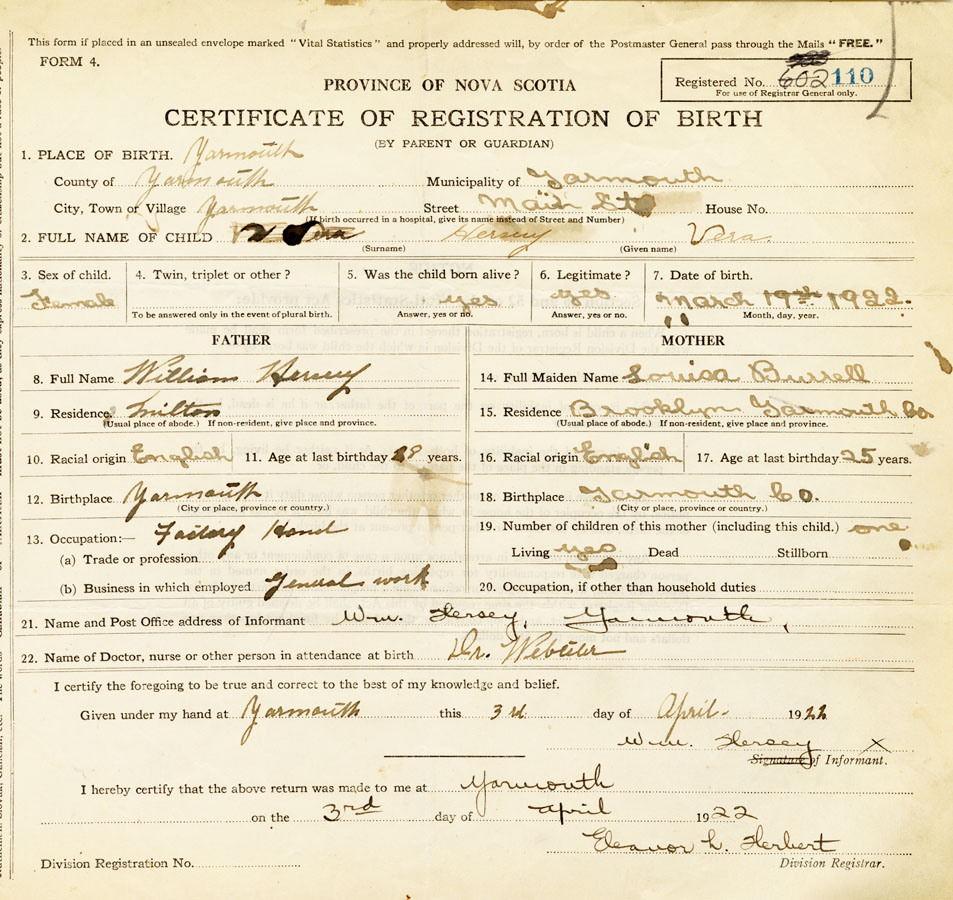 This form if placed in an unsealed envelope marked "Vital Statistics" and properly addressed will, by order of the Postmaster General pass through the Mails "FREE."
FORM 4.
Registered No. 602 110
For use of Registrar General only.
PROVINCE OF NOVA SCOTIA
CERTIFICATE OF REGISTRATION OF BIRTH
(BY PARENT OR GUARDIAN)
1. PLACE OF BIRTH. Yarmouth
County of Yarmouth Municipality of Yarmouth
City, Town or Village Yarmouth Street Main St House No.
(If birth occurred in a hospital, give its name instead of Street and Number)
2. FULL NAME OF CHILD Vera Hersey Vera.
(Surname) (Given name)
3. Sex of child. 4. Twin, triplet or other? 5. Was the child born alive? 6. Legitimate? 7. Date of birth.
Female yes yes March 19th 1922.
To be answered only in the event of plural birth. Answer, yes or no. Answer, yes or no. Month, day, year.
FATHER MOTHER
8. Full Name William Hersey 14. Full Maiden Name Louisa Burrell
9. Residence. Milton 15. Residence Brooklyn Yarmouth Co
(Usual place of abode.) If non-resident, give place and province. (Usual place of abode.) If non-resident, give place and province.
10. Racial origin English 11. Age at last birthday 28 years. 16. Racial origin English 17. Age at last birthday 25 years.
12. Birthplace Yarmouth 18. Birthplace Yarmouth Co.
(City or place, province or country.) (City or place, province or country.)
13. Occupation:— Factory Hand 19. Number of children of this mother (including this child.) one
(a) Trade or profession Living yes Dead Stillborn
(b) Business in which employed General work 20. Occupation, if other than household duties
21. Name and Post Office address of Informant Wm. Hersey, Yarmouth,
22. Name of Doctor, nurse or other person in attendance at birth Dr. Webster
I certify the foregoing to be true and correct to the best of my knowledge and belief.
Given under my hand at Yarmouth this 3rd day of April. 1922
Wm. Hersey X
Signature of Informant.
I hereby certify that the above return was made to me at Yarmouth
on the 3rd day of April 1922
Eleanor L. Herbert
Division Registration No. Division Registrar.